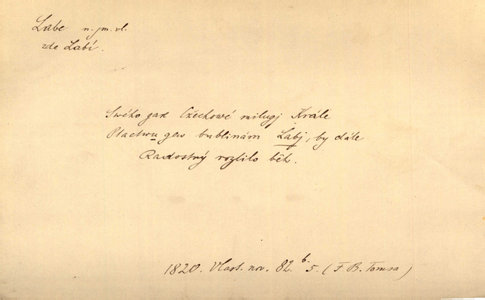 Labe n. jm. vl.
zde Labí.
Swého gak Čžechowé milugj Krále
Plachau geo bublinám Labj, by dále
Radostný rozlilo běh.
1820. Vlast. nov. 82 b 5. (F. B. Tomsa)